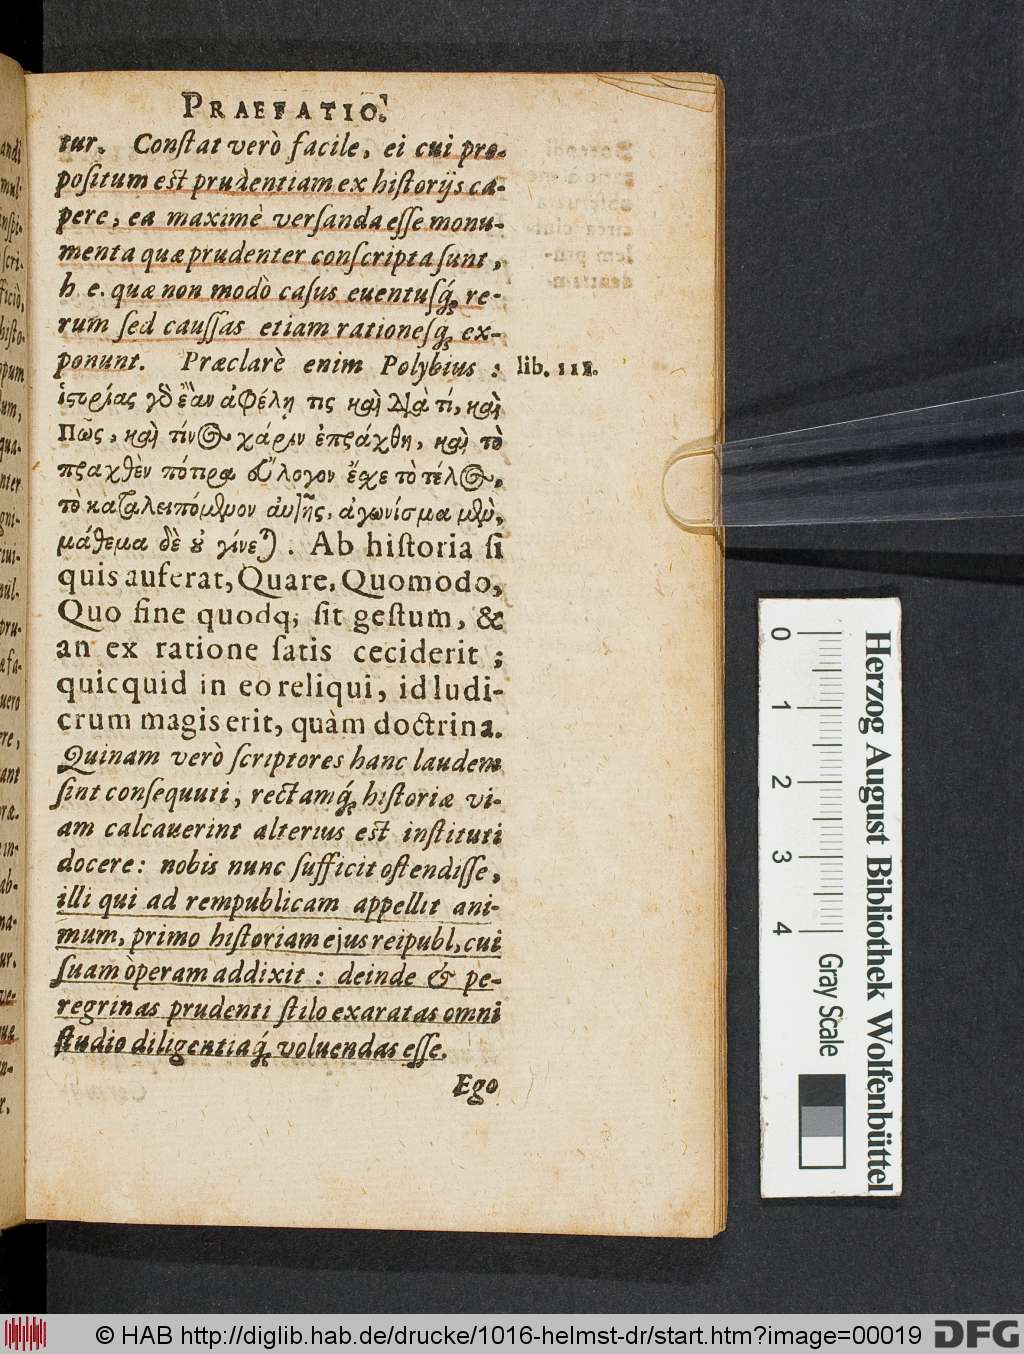 PRAEFATIO.
tur. Conſtat verò facile, ei cui pro-
poſitum eſt prudentiam ex hiſtorijs ca-
pere, ea maximè verſanda eſſe monu-
menta quæ prudenter conſcripta ſunt,
h e. quæ non modò caſus euentuſq́; re-
rum ſed cauſſas etiam rationeſq́; ex-
ponunt. Præclarè enim Polybius :
lib. III.
ἱστορίας γδ ἐὰν ἀφέλῃ τις καὶ διὰ τί, καὶ
πῶς, καὶ τίνος χάριν ἐπράχθη, καὶ τὸ
πραχθὲν πότερα εὔλογον ἔσχε τὸ τέλος,
τὸ καταλειπόμενον αὐτῆς, ἀγωνίσμα μὲν,
μάθεμα δὲ οὐ γίνεται. Ab hiſtoria ſi
quis auferat, Quare, Quomodo,
Quo fine quodq; ſit geſtum, &
an ex ratione ſatis ceciderit ;
quicquid in eo reliqui, id ludi-
crum magis erit, quàm doctrina.
Quinam verò ſcriptores hanc laudem
ſint conſequuti, rectamq́; hiſtoriæ vi-
am calcauerint alterius eſt inſtituti
docere: nobis nunc ſufficit oſtendiſſe,
illi qui ad rempublicam appellit ani-
mum, primo hiſtoriam ejus reipubl, cui
ſuam òperam addixit : deinde & pe-
regrinas prudenti ſtilo exaratas omni
ſtudio diligentiaq́; voluendas eſſe.
Ego
0 1 2 3 4
Gray Scale
Herzog August Bibliothek Wolfenbüttel
© HAB http://diglib.hab.de/drucke/1016-helmst-dr/start.htm?image=00019
DFG